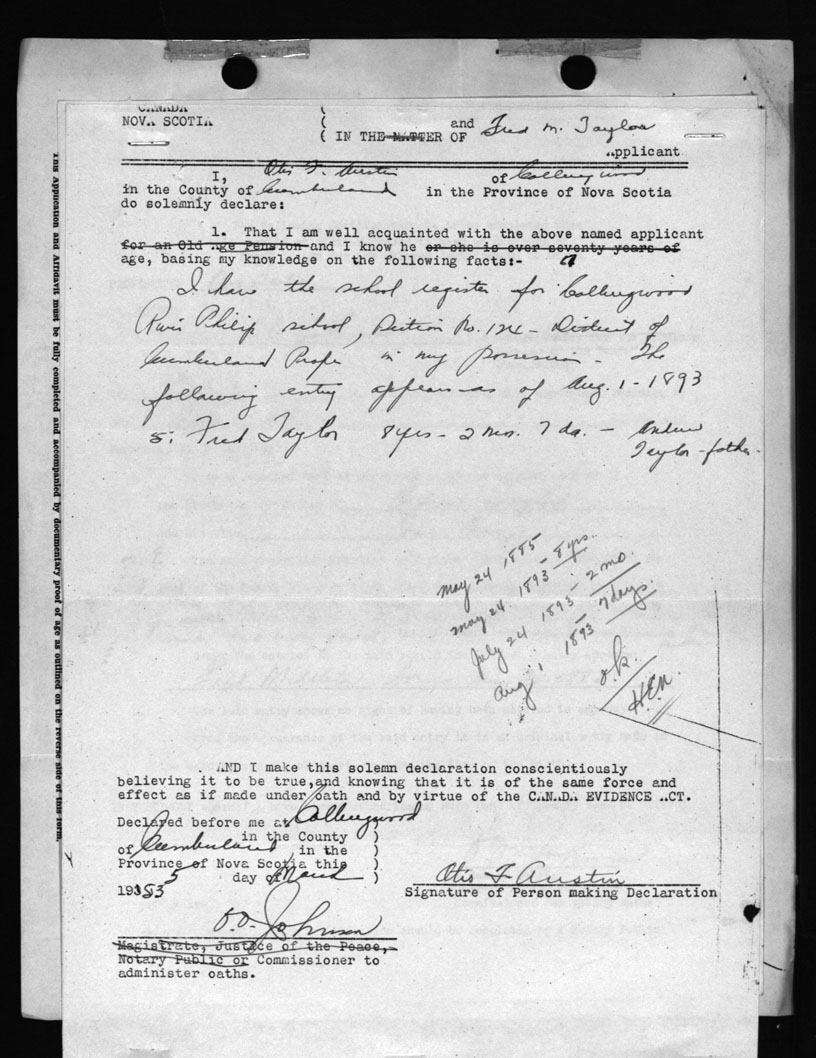 CANADA
NOVA SCOTIA
( IN THE MATTER OF and Fred M. Taylor
Applicant
I, Otis F. Austin of Collingwood
in the County of Cumberland in the Province of Nova Scotia
do solemnly declare:
1. That I am well acquainted with the above named applicant
for an Old Age Pension and I know he or she is over seventy years of
age, basing my knowledge on the following facts:-
I have the school register for Collingwood
River Philip school, Section No. 124 - District of
Cumberland Proper in my possession - The
following entry appears as of Aug. 1 - 1893
5: Fred Taylor 8 yrs - 2 mos. 7 da. - Andrew
Taylor - father.
may 24 1885
may 24 1893 - 8 yrs.
July 24 1893 - 2 mo.
aug 1 1893 - 7 days.
o.k.
H.E.M
AND I make this solemn declaration conscientiously
believing it to be true, and knowing that it is of the same force and
effect as if made under oath and by virtue of the CANADA EVIDENCE ACT.
Declared before me at Collingwood
in the County )
of Cumberland, in the )
Province of Nova Scotia this )
5 day of March )
1953
Otis F Austin
Signature of Person making Declaration
O.O. Johnson
Magistrate, Justice of the Peace,
Notary Public or Commissioner to
administer oaths.
This Application and Affidavit must be fully completed and accompanied by documentary proof of age as outlined on the reverse side of this form.